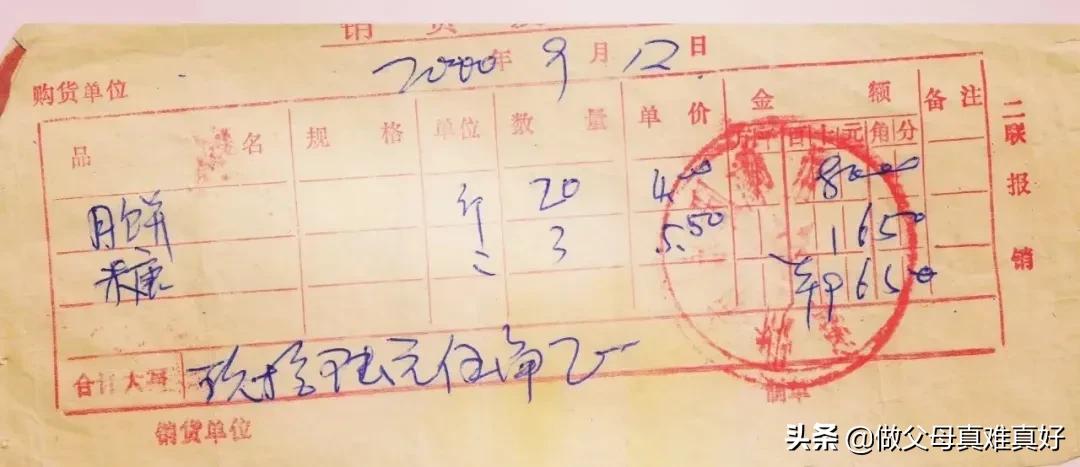 销货
2000年9月12日
购货单位
品名 规格 单位 数量 单价 金额 备注
万千百十元角分
月饼 斤 20 4.00 80.00
糖 〃 3 5.50 16 50
¥96 50
合计大写 玖拾陆元伍角
销货单位
制单
二联报销
头条 @做父母真难真好